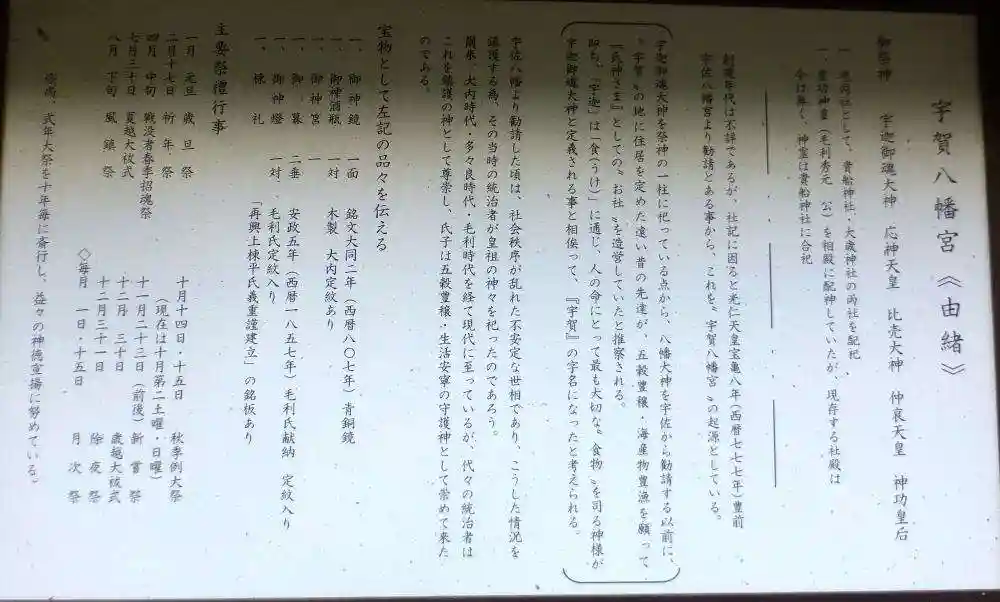 宇賀八幡宮《由緒》
御祭神　宇迦御魂大神　応神天皇　比売大神　仲哀天皇　神功皇后
一、境内社として、貴船神社・大歳神社の両社を配祀
一、豊功神皇（毛利秀元　公）を相殿に配神していたが、現存する社殿は
今は無く、神霊は貴船神社に合祀
創建年代は不詳であるが、社記に因ると光仁天皇宝亀八年（西暦七七七年）豊前
宇佐八幡宮より勧請とある事から、これを〝宇賀八幡宮〟の起源としている。
宇迦御魂大神を祭神の一柱に祀っている点から、八幡大神を宇佐から勧請する以前に、
〝宇賀〟の地に住居を定めた遠い昔の先達が、五穀豊穣・海産物豊漁を願って
『氏神さま』としての〝お社〟を造営していたと推察される。
即ち、『宇迦』は「食（うけ）」に通じ、人の命にとって最も大切な〝食物〟を司る神様が
宇迦御魂大神と定義される事と相俟って、『宇賀』の字名になったと考えられる。
宇佐八幡より勧請した頃は、社会秩序が乱れた不安定な世相であり、こうした情況を
鎮護する為、その当時の統治者が皇祖の神々を祀ったのであろう。
爾来、大内時代・多々良時代・毛利時代を経て現代に至っているが、代々の統治者は
これを鎮護の神として尊崇し、氏子は五穀豊穣・生活安寧の守護神として崇めて来た
のである。
宝物として左記の品々を伝える
一、御神鏡　一面　銘文大同二年（西暦八〇七年）青銅鏡
一、御神酒瓶　一対　木製　大内定紋あり
一、御神筥　一
一、御幕　二垂　安政五年（西暦一八五七年）毛利氏献納　定紋入り
一、御神燈　一対　毛利氏定紋入り
一、棟札　「再興上棟平氏義重謹建立」の銘板あり
主要祭禮行事
一月　元旦　歳旦祭
二月十七日　祈年祭
四月　中旬　戦没者春季招魂祭
七月三十日　夏越大祓式
八月　下旬　風鎮祭
十月十四日・十五日　秋季例大祭
（現在は十月第二土曜・日曜）
十一月二十三日（前後）新嘗祭
十二月　三十日　歳越大祓式
十二月三十一日　除夜祭
◇毎月　一日・十五日　月次祭
尚、式年大祭を十年毎に斎行し、益々の神徳宣揚に努めている。